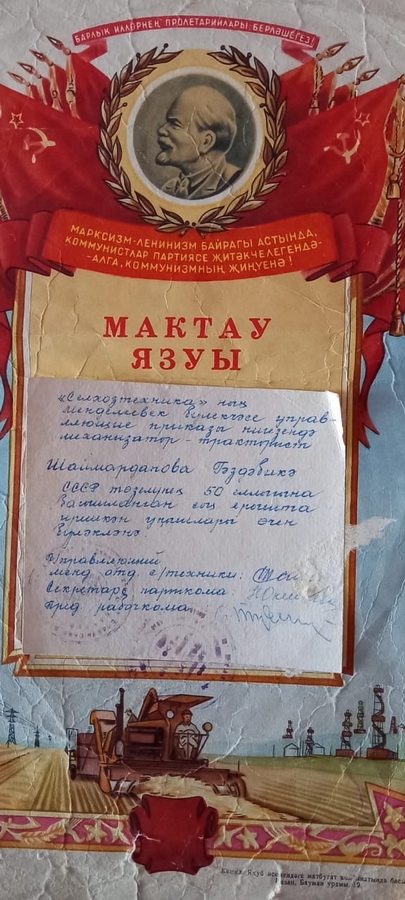 БАРЛЫК ИЛЛӘРНЕҢ ПРОЛЕТАРИЙЛАРЫ, БЕРЛӘШЕГЕЗ!
МАРКСИЗМ-ЛЕНИНИЗМ БАЙРАГЫ АСТЫНДА,
КОММУНИСТЛАР ПАРТИЯСЕ ҖИТӘКЧЕЛЕГЕНДӘ-
-АЛГА, КОММУНИЗМНЫҢ ҖИҢҮЕНӘ!
МАКТАУ
ЯЗУЫ
«Селхозтехника» ның
Менделеевск бүлекчәсе управ-
ляющие приказы нигезендә
механизатор - трактористы
Шаймарданова
СССР төзелүнең 50 еллыгына
соц.
ирешкән уңышлары өчен
бүләкләнә.
Управляющий
менд. отд. с/техники:
Секретарь парткома:
Пред рабочкома
Казан, Бауман урамы, 19.